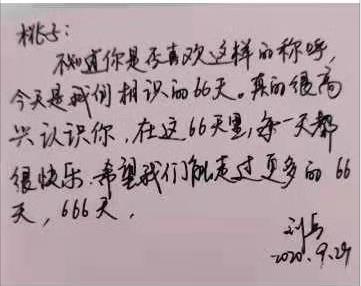 桃子:
不知道你是否喜欢这样的称呼,
今天是我们相识的66天。真的很高
兴认识你,在这66天里,每一天都
很快乐.希望我们能走过更多的 66
天,666天,
2020.9.29